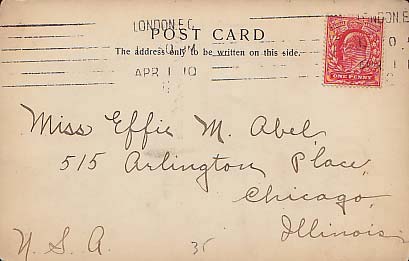 LONDON E.C.
POST CARD
The address only to be written on this side.
APR 1 10
ONE PENNY
Miss Effie M. Abel,
515 Arlington Place,
Chicago,
Illinois.
U.S.A.
35